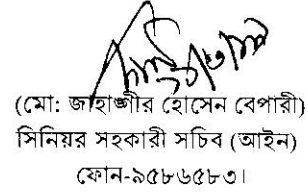 (মো: জাহাঙ্গীর হোসেন বেপারী)
সিনিয়র সহকারী সচিব (আইন)
ফোন-৯৫৮৬৫৮৩।